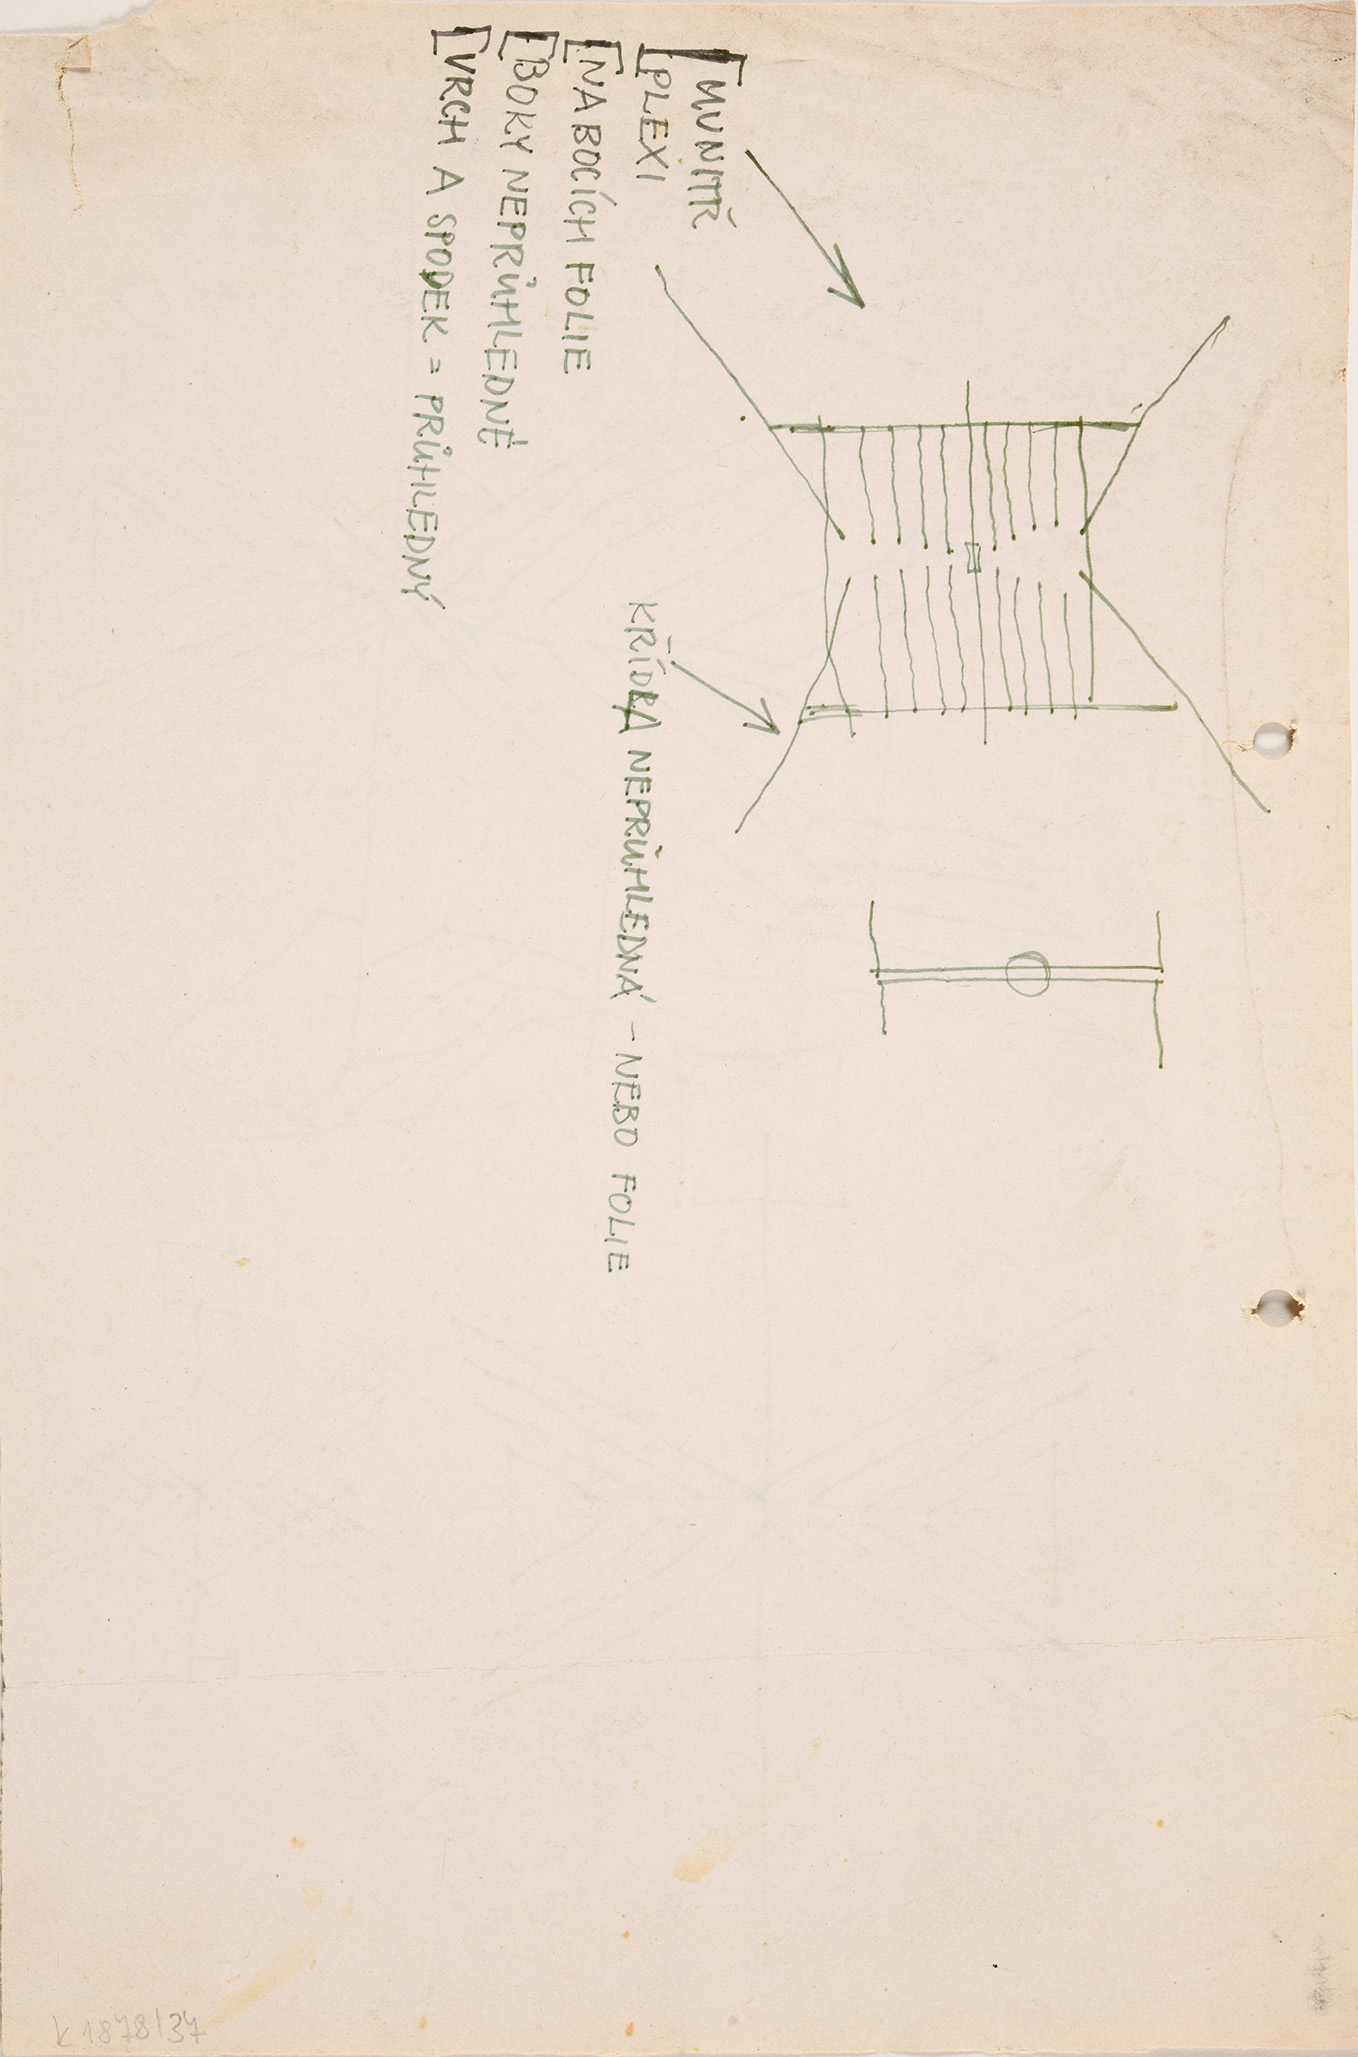 [UVNITŘ
[PLEXI
[NA BOCÍCH FOLIE
[BOKY NEPRŮHLEDNÉ
[VRCH A SPODEK = PRŮHLEDNÝ
KŘÍDLA NEPRŮHLEDNÁ – NEBO FOLIE
K 1878/37